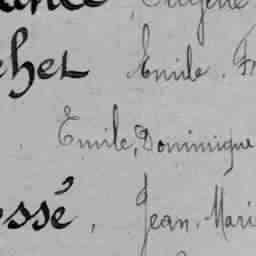 Eugène
chet Emile. Fr
Emile, Dominique
essé, Jean. Mari